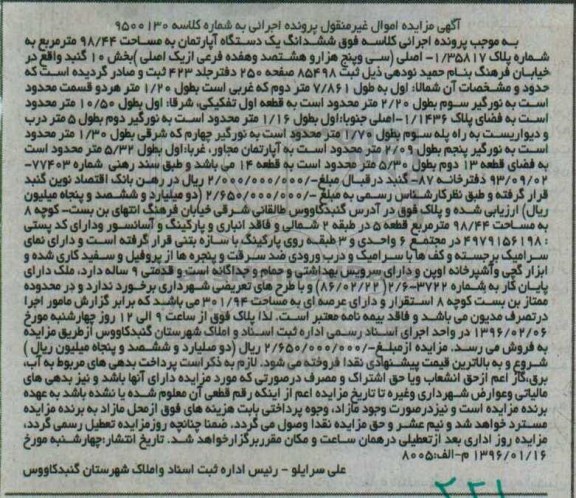 آگهی مزایده اموال غیرمنقول پرونده اجرائی به شماره کلاسه ۹۵۰۰۱۳۰
به موجب پرونده اجرائی کلاسه فوق ششدانگ یک دستگاه آپارتمان به مساحت ۹۸/۴۴ مترمربع به
شماره پلاک ۱/۳۵۸۱۷- اصلی (سی وپنج هزارو هشتصد وهفده فرعی ازیک اصلی )بخش ۱۰ گنبد واقع در
خیابان فرهنگ بنام حمید نودهی ذیل ثبت ۸۵۴۹۸ صفحه ۲۵۰ دفترجلد ۴۲۳ ثبت و صادر گردیده است که
حدود و مشخصات آن شمالا: اول به طول ۷/۸۶۱ متر دوم که غربی است بطول ۱/۲۰ متر هردو قسمت محدود
است به نورگیر سوم بطول ۲/۲۰ متر محدود است به قطعه اول تفکیکی، شرقا: اول بطول ۱۰/۵۰ متر محدود
است به فضای پلاک ۱/۱۴۳۶-اصلی جنوبا: اول بطول ۱/۱۶ متر محدود است به نورگیر دوم بطول ۵ متر درب
و دیواریست به راه پله سوم بطول ۱/۷۵ متر محدود است به نورگیر چهارم که شرقی بطول ۱/۳۰ متر محدود
است به نورگیر پنجم بطول ۲/۰۹ متر محدود است به آپارتمان مجاور، غربا: اول بطول ۵/۳۲ متر محدود است
به فضای قطعه ۱۳ دوم بطول ۵/۳۰ متر محدود است به قطعه ۱۴ می باشد و طبق سند رهنی شماره ۷۷۴۰۳-
۹۳/۰۹/۰۲ دفترخانه ۸۷- گنبد درقبال مبلغ-/۲/۰۰۰/۰۰۰/۰۰۰ ریال در رهن بانک اقتصاد نوین گنبد
قرار گرفته و طبق نظرکارشناس رسمی به مبلغ -/۲/۶۵۰/۰۰۰/۰۰۰ (دو میلیارد و ششصد و پنجاه میلیون
ریال) ارزیابی شده و پلاک فوق در آدرس گنبدکاووس طالقانی شرقی خیابان فرهنگ انتهای بن بست- کوچه ۸
به مساحت ۹۸/۴۴ مترمربع قطعه ۵ در طبقه ۲ شمالی و فاقد انباری و پارکینگ و آسانسور ودارای کد پستی
: ۴۹۷۹۱۵۶۱۹۸ در مجتمع ۶ واحدی و ۳ طبقه روی پارکینگ با سازه بتنی قرار گرفته است و دارای نمای
سرامیک برجسته و کف ها با سرامیک و درب ورودی ضد سرقت و پنجره ها از پروفیل و سفید کاری شده و
ابزار گچی وآشپرخانه اوپن و دارای سرویس بهداشتی و حمام و جداگانه است و قدمتی ۹ ساله دارد، ملک دارای
پایان کار به شماره ۳۷۲۲-۲/۶ (۸۶/۰۲/۲۲) و با طرح های تعریضی شهرداری برخورد ندارد و در محدوده
ممتاز بن بست کوچه ۸ استقرار و دارای عرصه ای به مساحت ۳۰۱/۹۴ می باشد که برابر گزارش مامور اجرا
درتصرف مدیون می باشد و فاقد بیمه نامه معتبر است. لذا پلاک فوق از ساعت ۹ الی ۱۲ روز چهارشنبه مورخ
۱۳۹۶/۰۲/۰۶ در واحد اجرای اسناد رسمی اداره ثبت اسناد و املاک شهرستان گنبدکاووس ازطریق مزایده
به فروش می رسد. مزایده ازمبلغ-/۲/۶۵۰/۰۰۰/۰۰۰ ریال (دو میلیارد و ششصد و پنجاه میلیون ریال )
شروع و به بالاترین قیمت پیشنهادی نقدا فروخته می شود. لازم به ذکراست پرداخت بدهی های مربوط به آب،
برق،گاز اعم ازحق انشعاب ویا حق اشتراک و مصرف درصورتی که مورد مزایده دارای آنها باشد و نیز بدهی های
مالیاتی وعوارض شهرداری وغیره تا تاریخ مزایده اعم از اینکه رقم قطعی آن معلوم شده یا نشده باشد به عهده
برنده مزایده است و نیزدرصورت وجود مازاد، وجوه پرداختی بابت هزینه های فوق ازمحل مازاد به برنده مزایده
مسترد خواهد شد و نیم عشر و حق مزایده نقدا وصول می گردد. ضمنا چنانچه روزمزایده تعطیل رسمی گردد،
مزایده روز اداری بعد ازتعطیلی درهمان ساعت و مکان مقرربرگزارخواهد شد. تاریخ انتشار:چهارشنبه مورخ
۱۳۹۶/۰۱/۱۶ م-الف:۸۰۰۵
علی سرایلو - رئیس اداره ثبت اسناد واملاک شهرستان گنبدکاووس